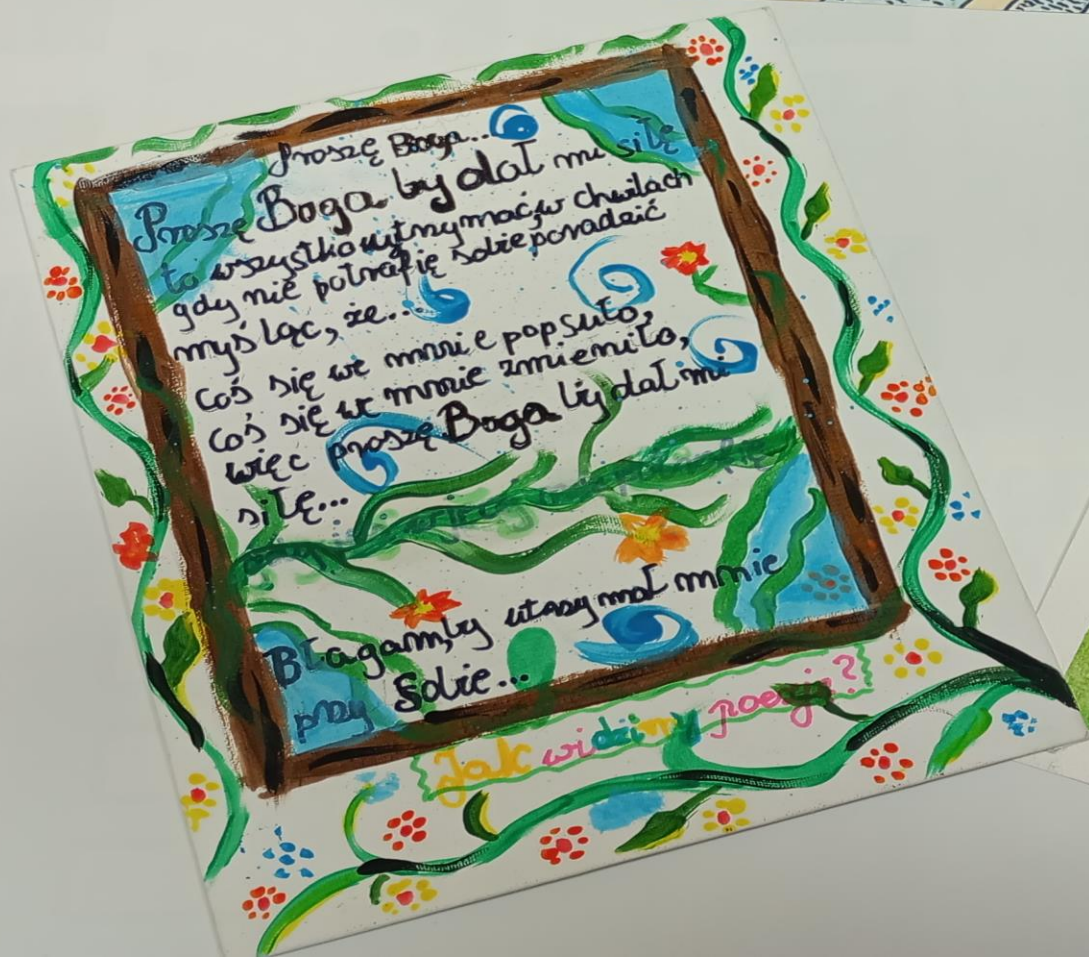 Proszę Boga...
Proszę Boga by dał mi siłę
to wszystko wytrzymać, w chwilach
gdy nie potrafię sobie poradzić
myśląc, że...
coś się we mnie popsuło,
coś się we mnie zmieniło,
więc proszę Boga by dał mi
siłę...
Błagam, by utrzymał mnie
przy sobie...
Jak widzimy poezję?